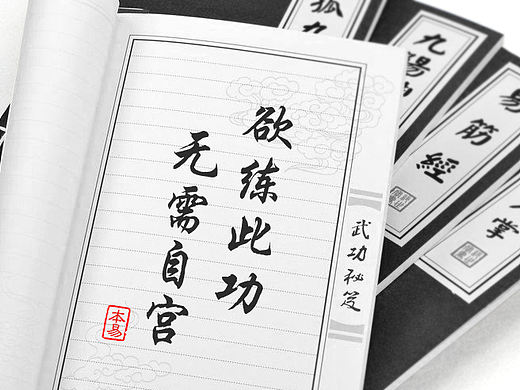 欲练此功
无需自宫
本易
武功秘笈
九陽
易筋經
掌